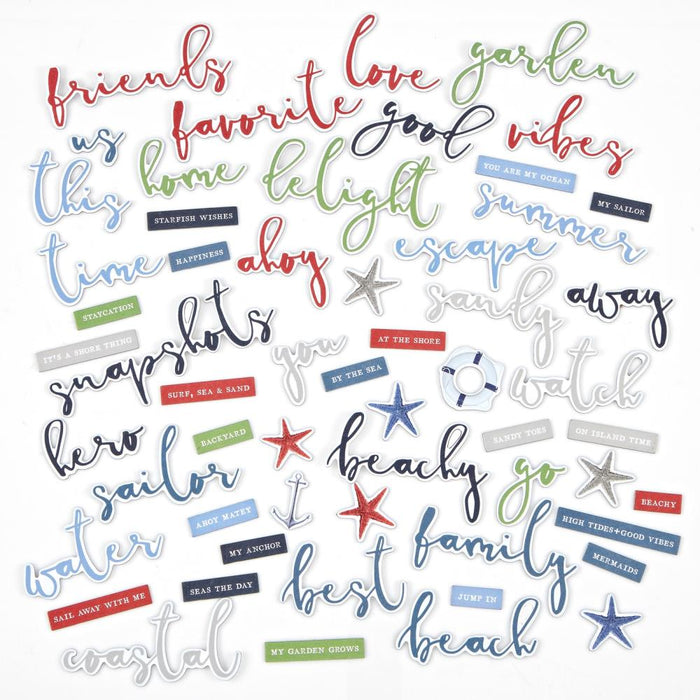 friends
love
garden
favorite
good
vibes
us
this
home
delight
YOU ARE MY OCEAN
MY SAILOR
STARFISH WISHES
summer
time
HAPPINESS
ahoy
escape
sandy
away
STAYCATION
IT'S A SHORE THING
snapshots
you
AT THE SHORE
BY THE SEA
watch
SURF, SEA & SAND
hero
BACKYARD
beachy
SANDY TOES
ON ISLAND TIME
go
sailor
BEACHY
AHOY MATEY
HIGH TIDES+GOOD VIBES
water
MY ANCHOR
family
MERMAIDS
SEAS THE DAY
best
JUMP IN
SAIL AWAY WITH ME
beach
coastal
MY GARDEN GROWS